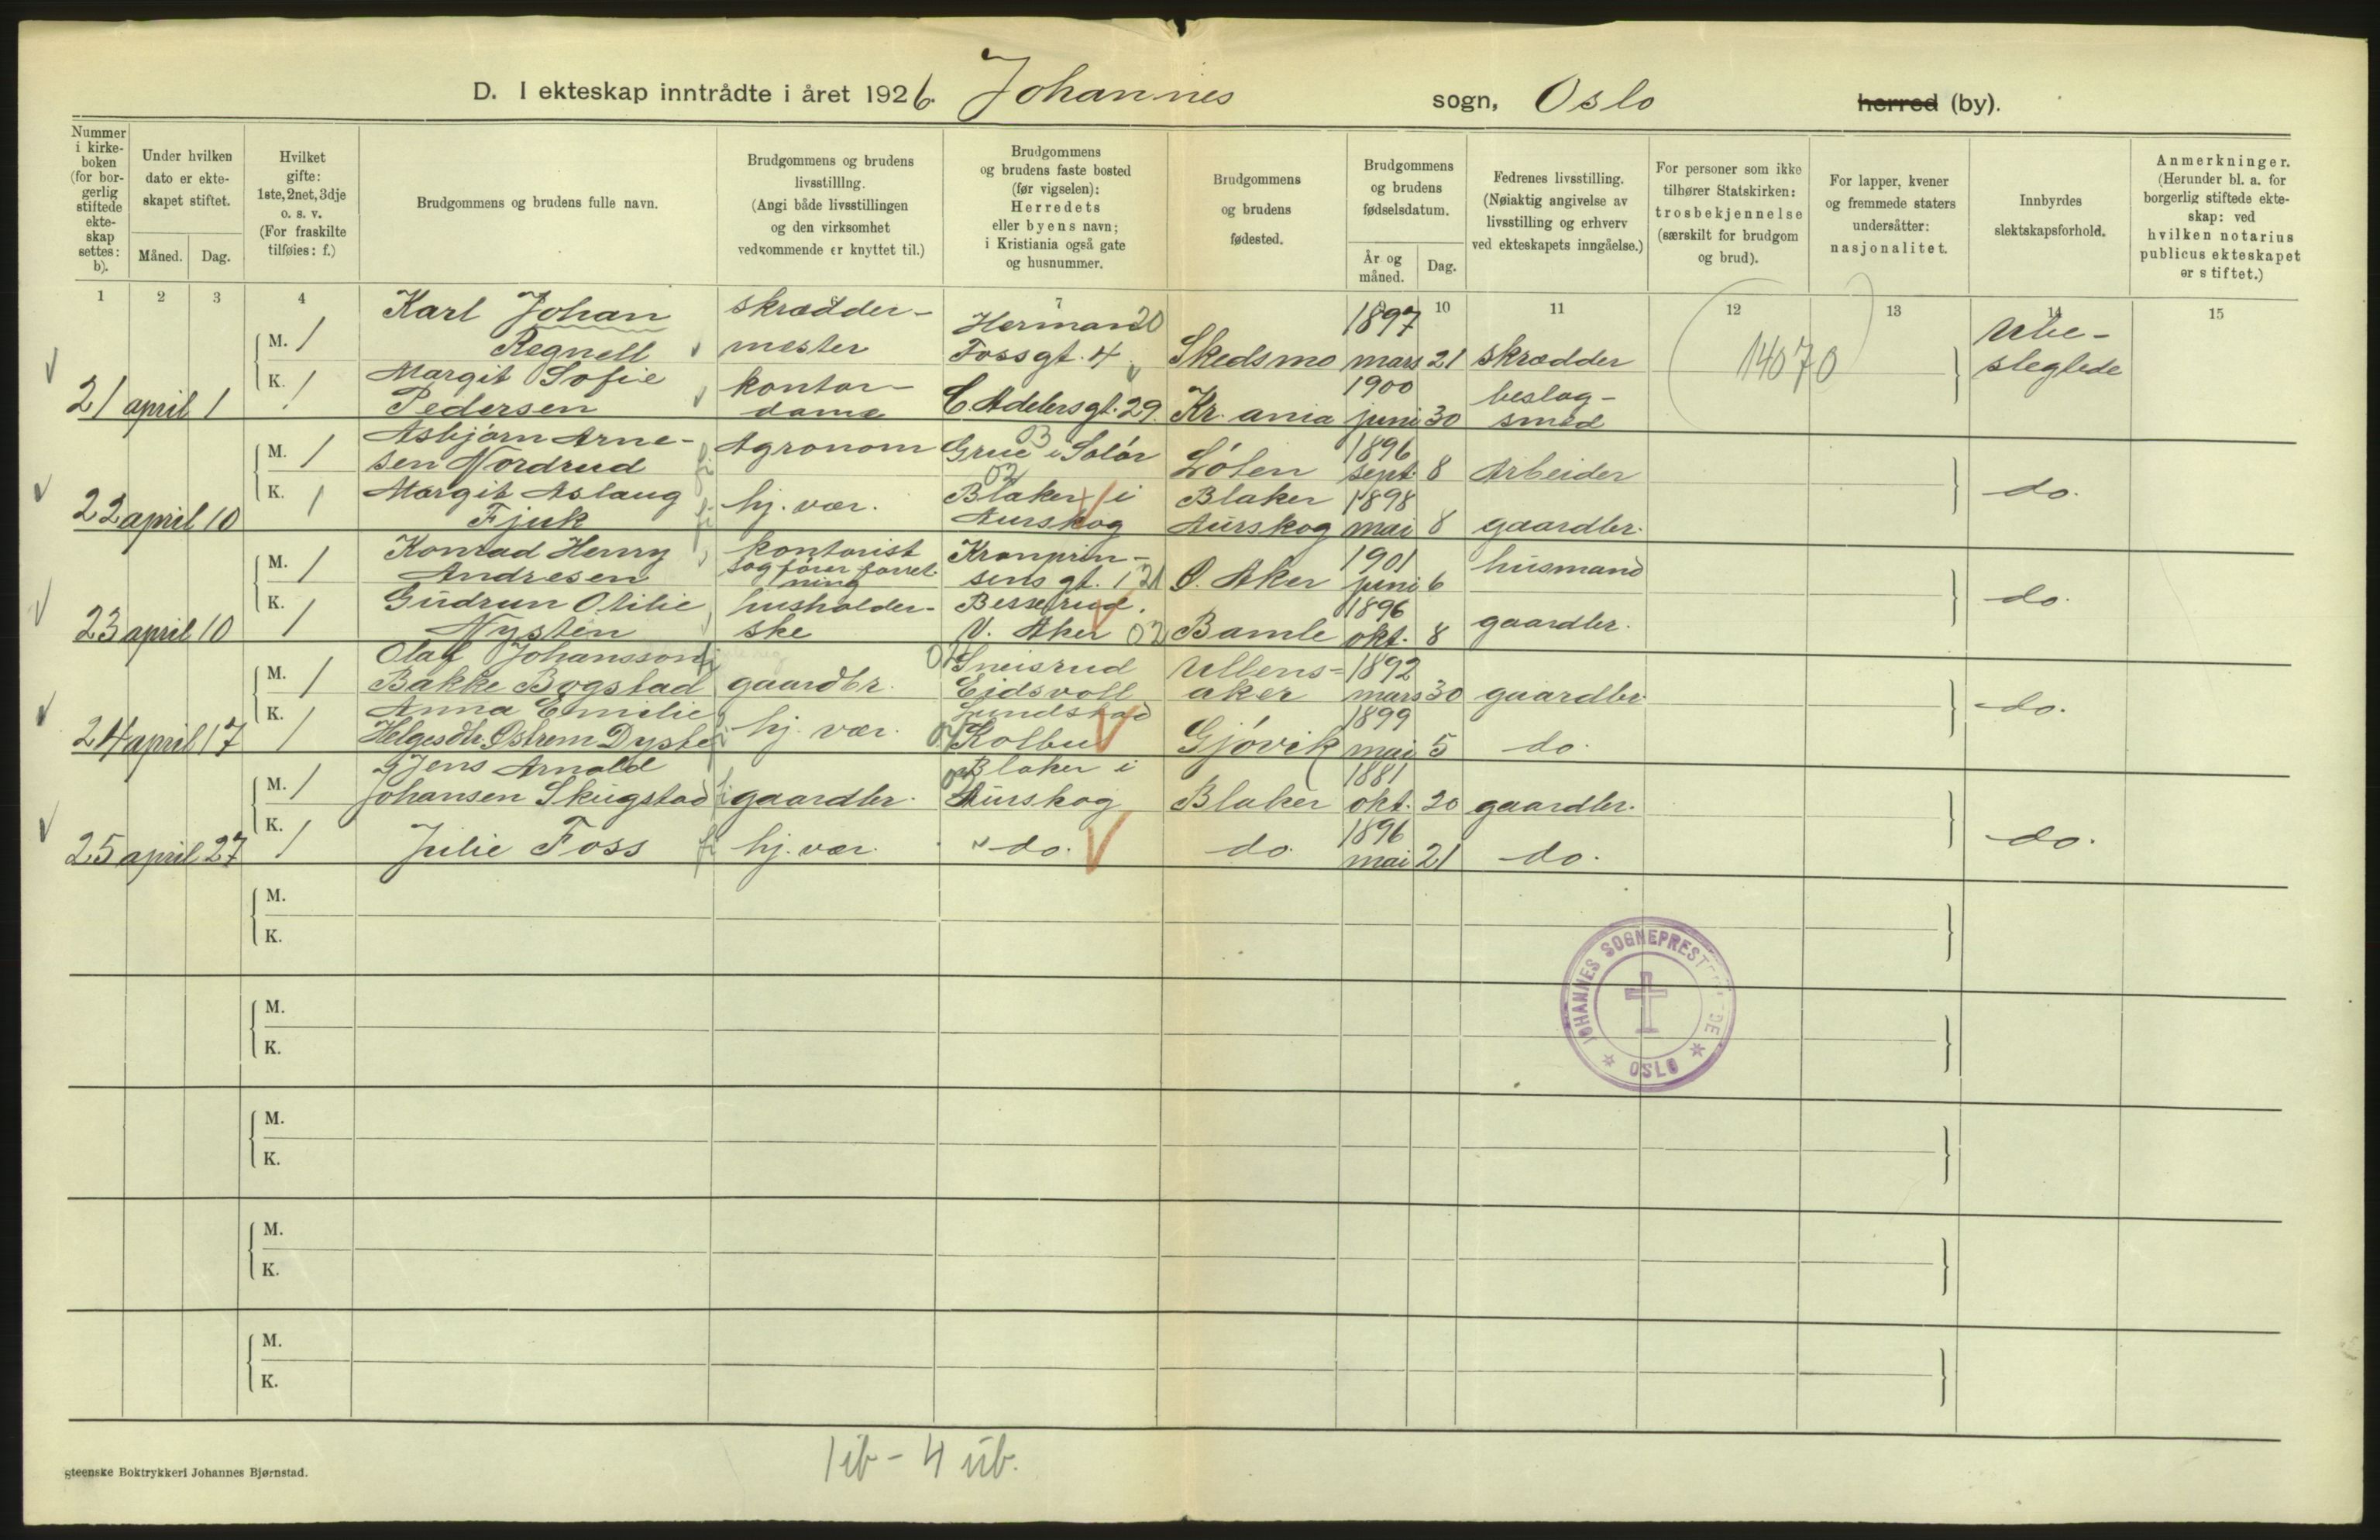 D. I ekteskap inntrådte i året 1926. Johannes sogn, Oslo herred (by).
Nummer i kirke-boken (for bor-gerlig stiftede ekte-skap settes: b).
Under hvilken dato er ekte-skapet stiftet.
Måned. Dag.
Hvilket gifte: 1ste, 2net, 3dje o. s. v. (For fraskilte tilføies: f.)
Brudgommens og brudens fulle navn.
Brudgommens og brudens livsstilling. (Angi både livsstillingen og den virksomhet vedkommende er knyttet til.)
Brudgommens og brudens faste bosted (før vigselen): Herredets eller byens navn; i Kristiania også gate og husnummer.
Brudgommens og brudens fødested.
Brudgommens og brudens fødselsdatum.
År og måned. Dag.
Fedrenes livsstilling. (Nøiaktig angivelse av livsstilling og erhverv ved ekteskapets inngåelse.)
For personer som ikke tilhører Statskirken: trosbekjennelse (særskilt for brudgom og brud).
For lapper, kvener og fremmede staters undersåtter: nasjonalitet.
Innbyrdes slektskapsforhold.
Anmerkninger. (Herunder bl. a. for borgerlig stiftede ekte-skap: ved hvilken notarius publicus ekteskapet er stiftet.)
1 2 3 4 7 10 11 12 13 14 15
21 april 1
M. 1 Karl Johan Regnell skrædder-mester Herman Fossgt. 4 20 Skedsmo 1897 mars 21 skrædder 14070 Ube-slegtede
K. 1 Margit Sofie Pedersen kontor-dame C. Adelersgt. 29. Kr. ania 1900 juni 30 beslag-smed
22 april 10
M. 1 Asbjørn Arne-sen Nordrud Agronom Grue i Solør 03 Løten 1896 sept. 8 Arbeider do.
K. 1 Margit Aslaug Fjuk hj. vær. Blaker i Aurskog 02 Blaker Aurskog 1898 mai 8 gaardbr.
23 april 10
M. 1 Konrad Henry Andresen kontorist sagfører forret-ning Kronprin-sens gt. 1 21 Ø. Aker 1901 juni 6 husmand do.
K. 1 Gudrun Otilie Nysten husholder-ske Besserud. V. Aker 02 Bamle 1896 okt. 8 gaardbr.
24 april 17
M. 1 Olaf Johansson Bakke Bogstad gaardbr. Sneisrud Eidsvoll Ullens-aker 1892 mars 30 gaardbr. do.
K. 1 Anna Emilie Helgesdtr. Østrem Dyste hj. vær. Lundstad Kolbu Gjøvik 1899 mai 5 do.
25 april 27
M. 1 Jens Arnold Johansen Skugstad gaardbr. Blaker i Aurskog Blaker 1881 okt. 20 gaardbr. do.
K. 1 Julie Foss hj. vær. do. do. 1896 mai 21 do.
M.
K.
M.
K.
JOHANNES SOGNEPREST
OSLO
M.
K.
M.
K.
M.
K.
1 ib - 4 ub.
Steenske Boktrykkeri Johannes Bjørnstad.